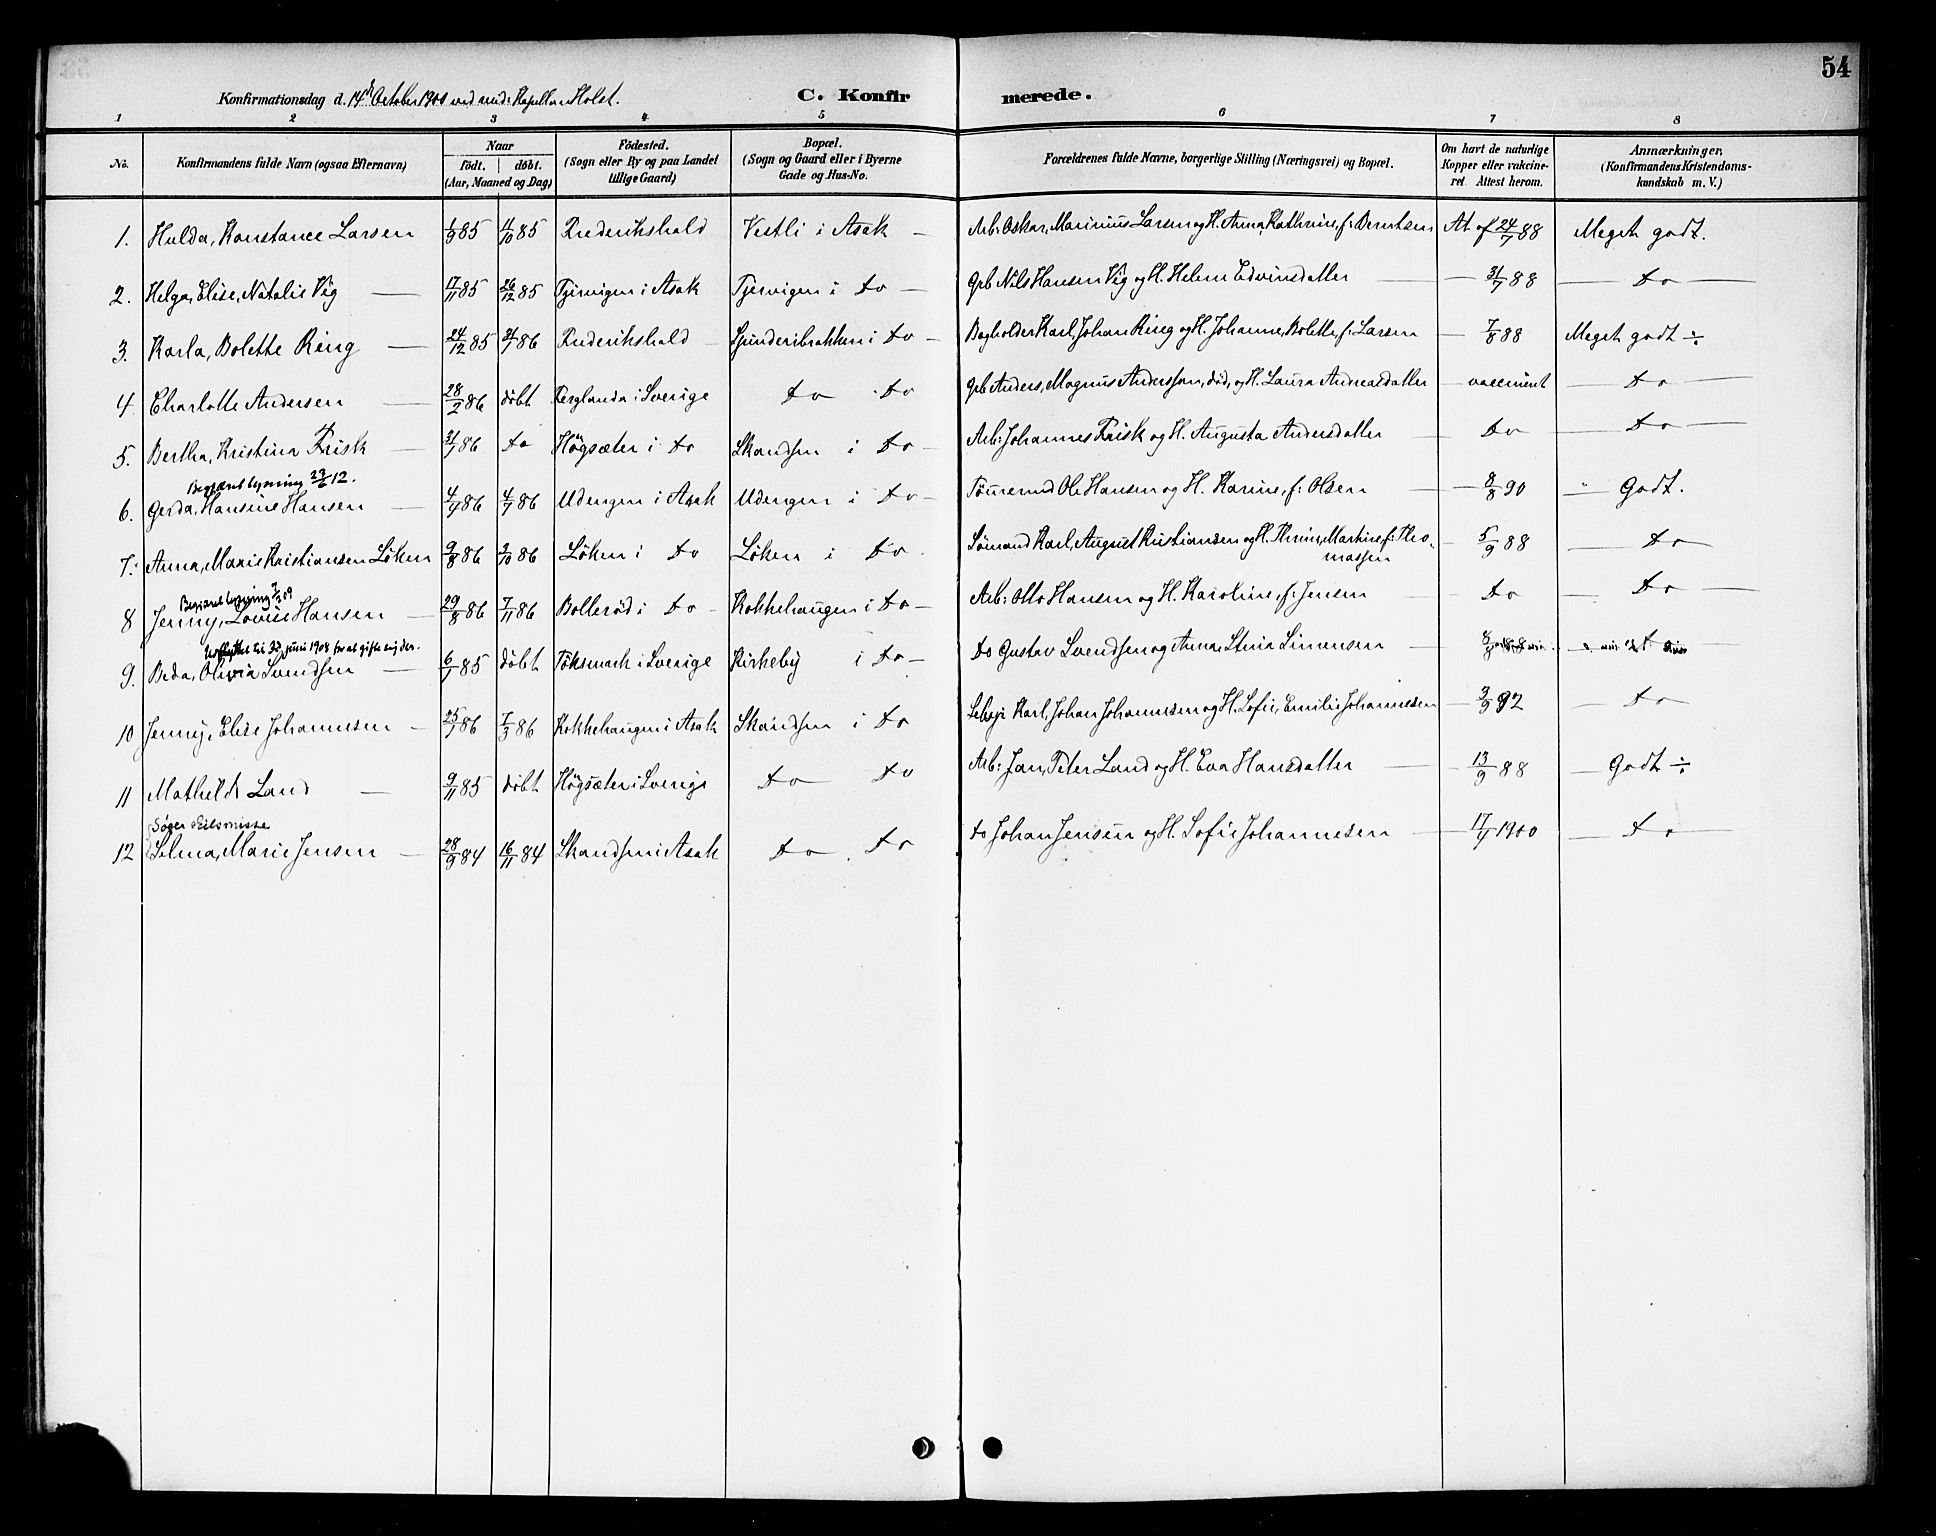 54
Konfirmationsdag d. 14de October 1900 ved resid: Kapellan Holst. C. Konfir merede.
1 2 3 4 5 6 7 8
No. Konfirmandens fulde Navn (ogsaa Efternavn) Naar født. døbt. (Aar, Maaned og Dag) Fødested. (Sogn eller By og paa Landet tillige Gaard) Bopæl. (Sogn og Gaard eller i Byerne Gade og Hus-No. Forældrenes fulde Navne, borgerlige Stilling (Næringsvei) og Bopæl. Om havt de naturlige Kopper eller vakcineret Attest herom. Anmærkninger, (Konfirmandens Kristendomskundskab m. V.)
1. Hulda, Konstance Larsen 1/9 85 4/10 85 Frederikshald Vestli i Asak – Arb: Oskar, Marinius Larsen og H. Anna, Kathrine, f: Berntsen At. af 24/7 88 Meget godt.
2. Helga, Elise, Natalie Vig — 17/11 85 26/12 85 Tjervigen i Asak Tjervigen i do – Grb Nils Hansen Vig og H. Helene Edvinsdatter — 31/7 88 — do —
3. Karla, Bolette Ring — 24/12 85 86 Frederikshald – i do – Bogholder Karl, Johan Ring og H. Johanne, Bolette f: Larsen — 7/8 88 Meget godt ÷
4. Charlotte Andersen — 28/2 86 døbt Ferglanda i Sverige do do Grb Anders, Magnus Anderssøn, død, og H. Laura Andreasdatter — vaccineret — do —
5. Bertha, Kristina Frisk — 86 do Högsæter i do Skandsen i do – Arb: Johannes Frisk og H. Augusta Andersdatter — do — do —
Begjæret lysning 23/6 12.
6. Gerda, Hansine Hansen — 86 86 Udengen i Asak Udengen i do – Tømmermd Ole Hansen og H. Karine, f: Olsen — 8/8 90 " Godt.
7. Anna, Marie Kristiansen Løken 9/8 86 3/10 86 Løken i do Løken i do Sømand Karl, August Kristiansen og H. Thrine, Martine f: Thomassen — 5/9 88 — do
Begjæret lysning 09
8 Jenny, Lovise Hansen — 29/8 86 7/11 86 Bollerød i do – Kokkehaugen i do – Arb: Otto Hansen og H. Karoline, f: Jensen — do — do —
til juni 1908 for at gifte sig der.
9. Beda, Olivia Svendsen — 6/7 85 døbt Töksmark i Sverige Kirkeby i do – do Gustav Svendsen og Anna, Stina Simensen — 8/8 88
10 Jenny, Elise Johannesen – 86 7/3 86 Kokkehaugen i Asak Skandsen i do Karl, Johan Johannesen og H. Sofie, Emilie Johannesen — 3/9 92 — do —
11 Mathilde Land — 9/11 85 døbt Högsæter i Sverige do do Arb: Jan, Peter Land og H. Eva Hansdatter — 13/9 88 — Godt ÷
Søger
12 Selma, Marie Jensen – 28/9 84 16/11 84 Skandsen i Asak do do do Johan Jensen og H. Sofie Johannesen — 1900 — do —